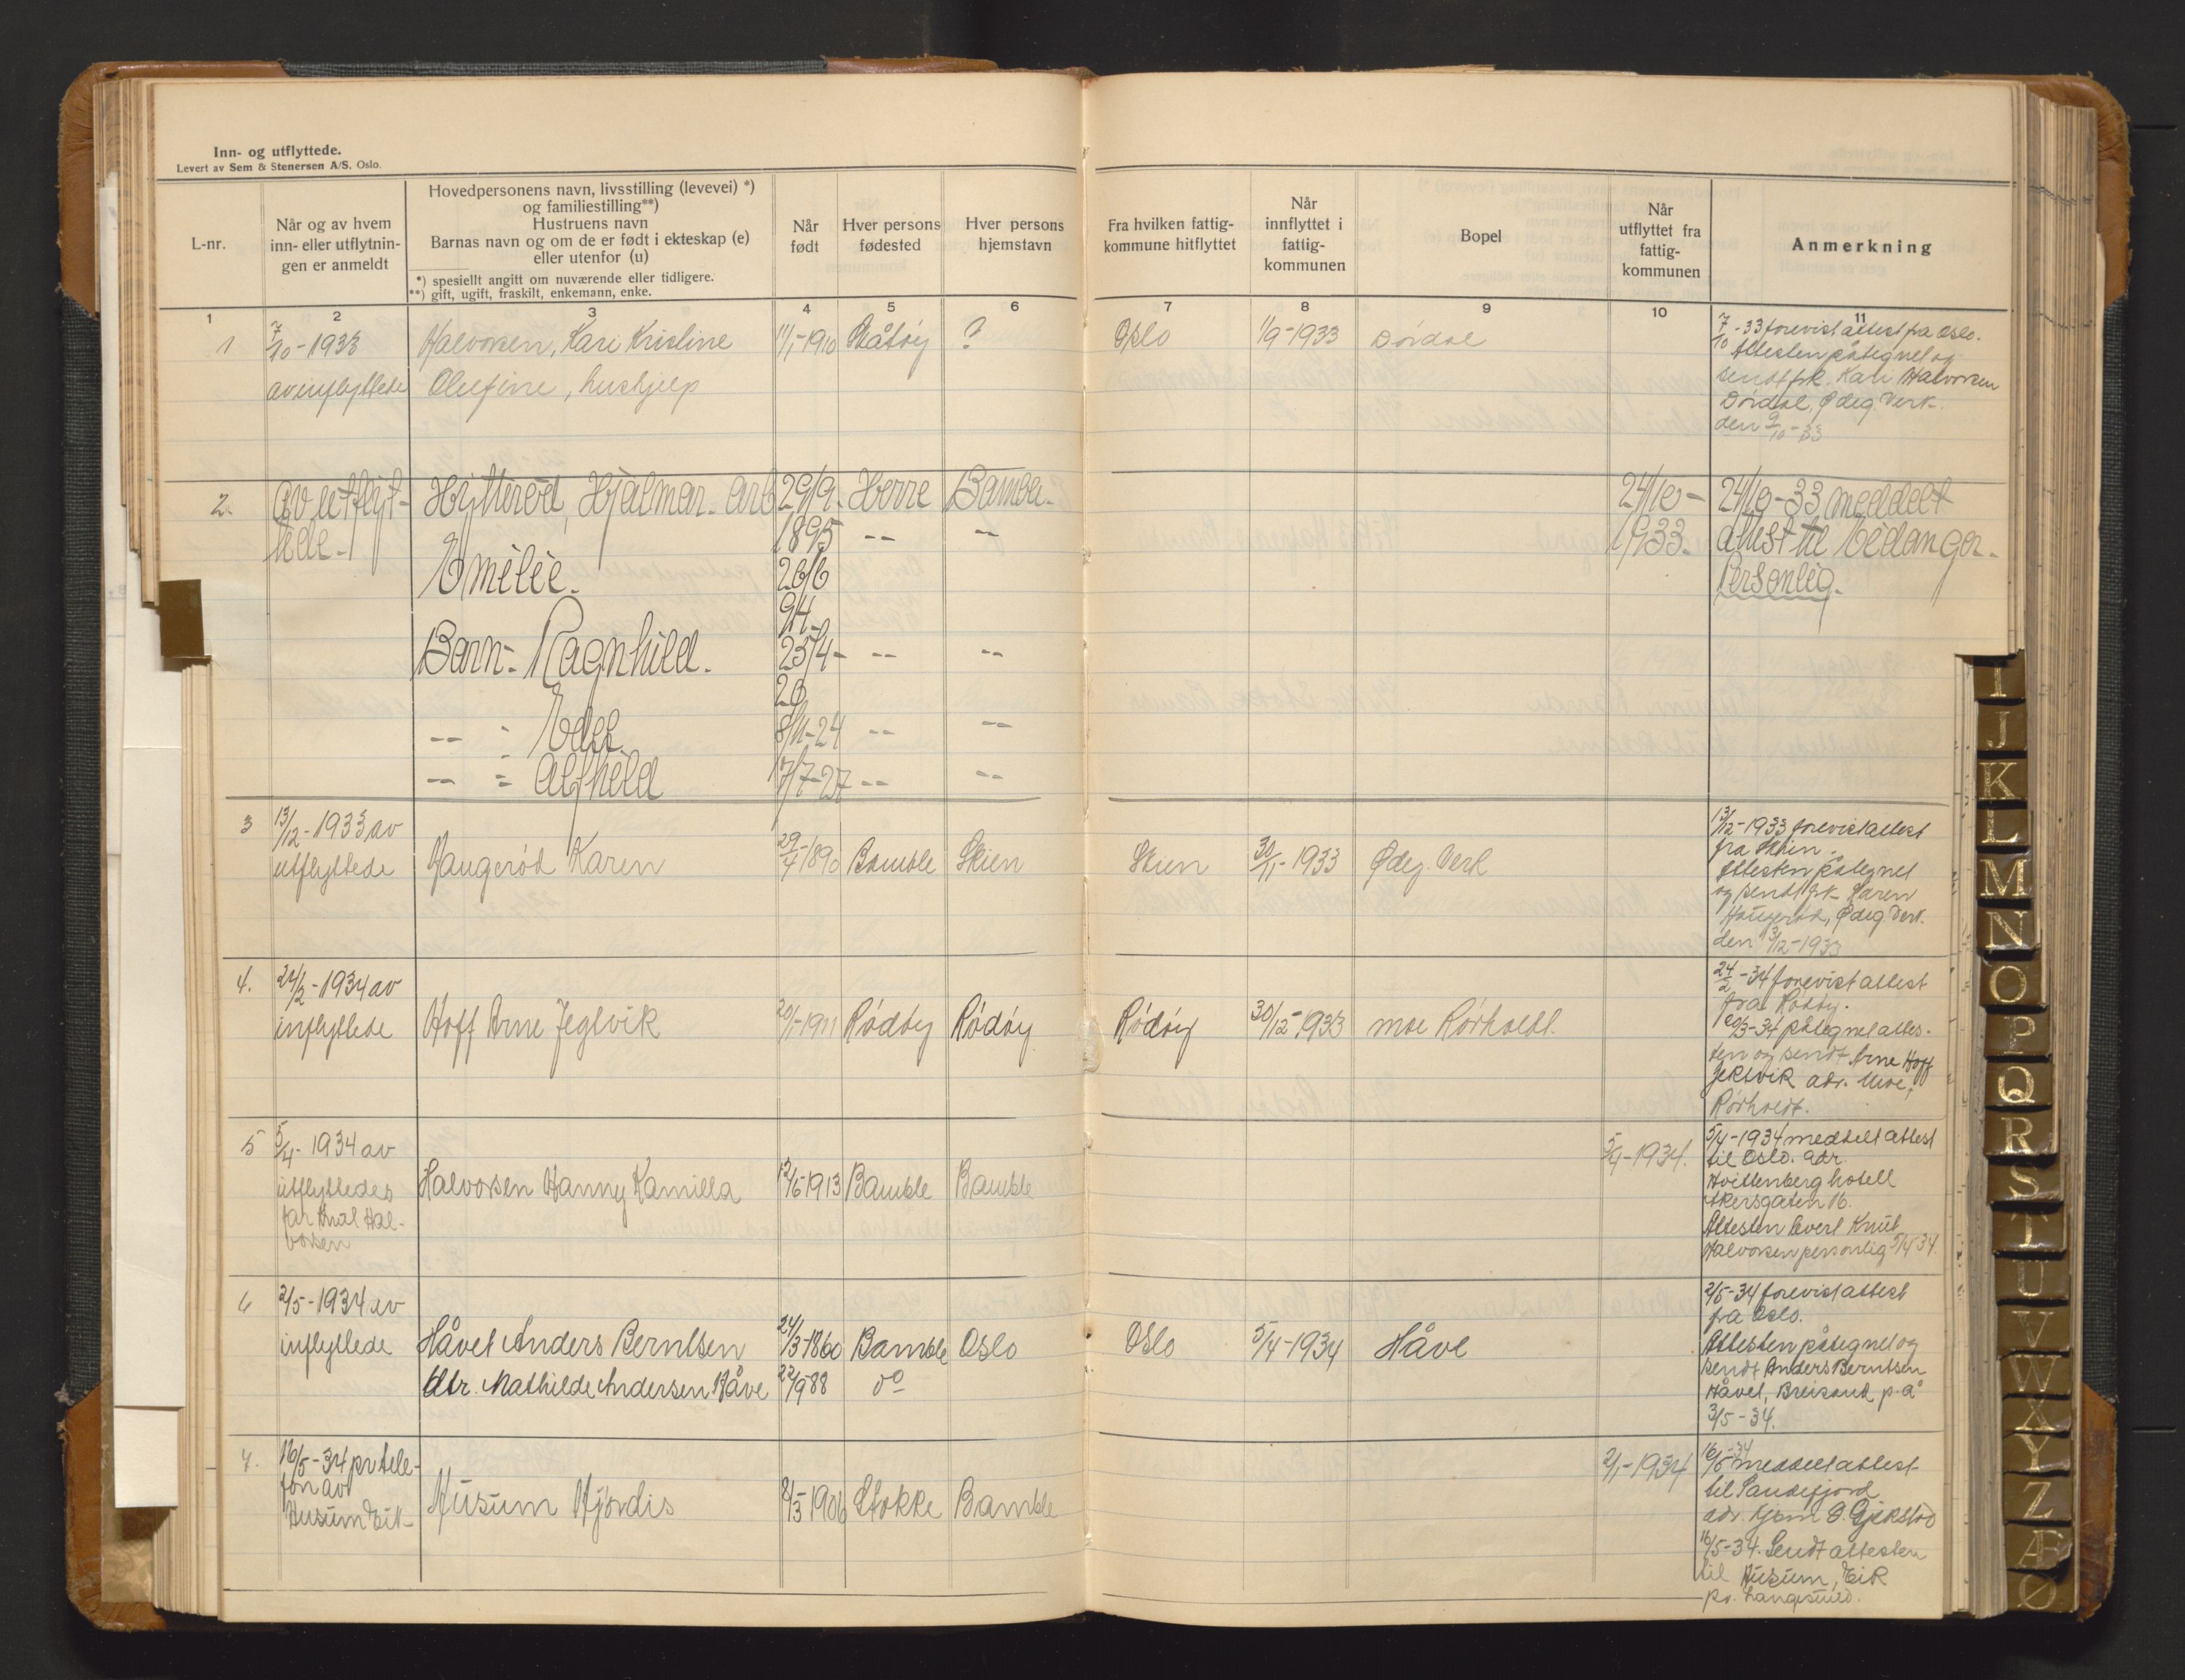 Inn- og utflyttede.
Levert av Sem & Stenersen A/S. Oslo.
L-nr.
Når og av hvem
inn- eller utflytnin-
gen er anmeldt
Hovedpersonens navn, livsstilling (levevei) *)
og familiestilling**)
Hustruens navn
Barnas navn og om de er født i ekteskap (e)
eller utenfor (u)
*) spesiellt angitt om nuværende eller tidligere.
**) gift, ugift, fraskilt, enkemann, enke.
Når
født
Hver persons
fødested
Hver persons
hjemstavn
Fra hvilken fattig-
kommune hitflyttet
Når
innflyttet i
fattig-
kommunen
Bopel
Når
utflyttet fra
fattig-
kommunen
Anmerkning
1 2 3 4 5 6 7 8 9 10 11
1 7/10-1933 Halvorsen, Kari Kristine 11/1-1910 Skåtøy ? Oslo 1/9-1933 Dördal 7/10-33 forevist attest fra Oslo.
av inflyttede Olefine, hushjelp Attesten påtegnet og
sendt frk. Kari Halvorsen
Dördal, Ødeg. Verk.
den 9/10-33
2. av utflyt- Hytterød, Hjalmar. Arb 29/9- Herre Bamble. 24/10- 24/10-33 meddelt
tede. 1895 -- -- 1933. attest til Eidanger.
Emilie. 26/6 Personlig.
94.
Barn- Ragnhild. 23/4- -- --
20
-- - Edel 8/11-24 -- --
-- = Alfhild 7/7-27 -- --
3 13/12-1933 av 13/12-1933 forevist attest
utflyttede Haugerød Karen 29/7-1890 Bamble Skien Skien 30/11-1933 Ødeg. Verk fra Skien.
Attesten påtegnet
og sendt frk Karen
Haugerød, Ødeg. Verk.
den 13/12-1933
4. 24/2-1934 av 24/2-34 forevist attest
inflyttede Hoff Arne Jeglvik 20/1-1911 Rödöy Rödöy Rödöy 30/12-1933 Moe Rörholdt. fra Rödöy.
20/3-34 påtegnet attes-
ten og sendt Arne Hoff
Jektvik adr. Moe,
Rörholdt.
5 5/4-1934 av 5/4-1934. 5/4-1934 meddelt attest
utflyttedes Halvorsen Hanny Kamilla 12/6 1913 Bamble Bamble til Oslo. adr.
far Knut Hal- Hvittenberg hotell
vorsen Akersgaten 16.
Attesten levert Knut
Halvorsen personlig 5/4 34.
6 2/5-1934 av 2/5-34 forevist attest
inflyttede Håvet Anders Berntsen 24/3-1860 Bamble Oslo Oslo 5/4-1934 Håve fra Oslo.
dtr. Mathilde Andersen Håve 22/9 88 do Attesten påtegnet og
sendt Anders Berntsen
Håvet, Breisand p.å
3/5-34.
7. 16/5-34 pr tele- 2/1-1934 16/5-34 meddelt attest
fon av Husum Hjördis 8/3-1906 Stokke Bamble til Sandefjord
Husum Eik adr. Hjem G. Gjekstad
16/5-34. Sendt attesten
til Husum, Eik
pr. Langesund.
I
J
K
L
M
N
O
P
Q
R
S
T
U
V
W
X
Y
Z
Æ
Ø